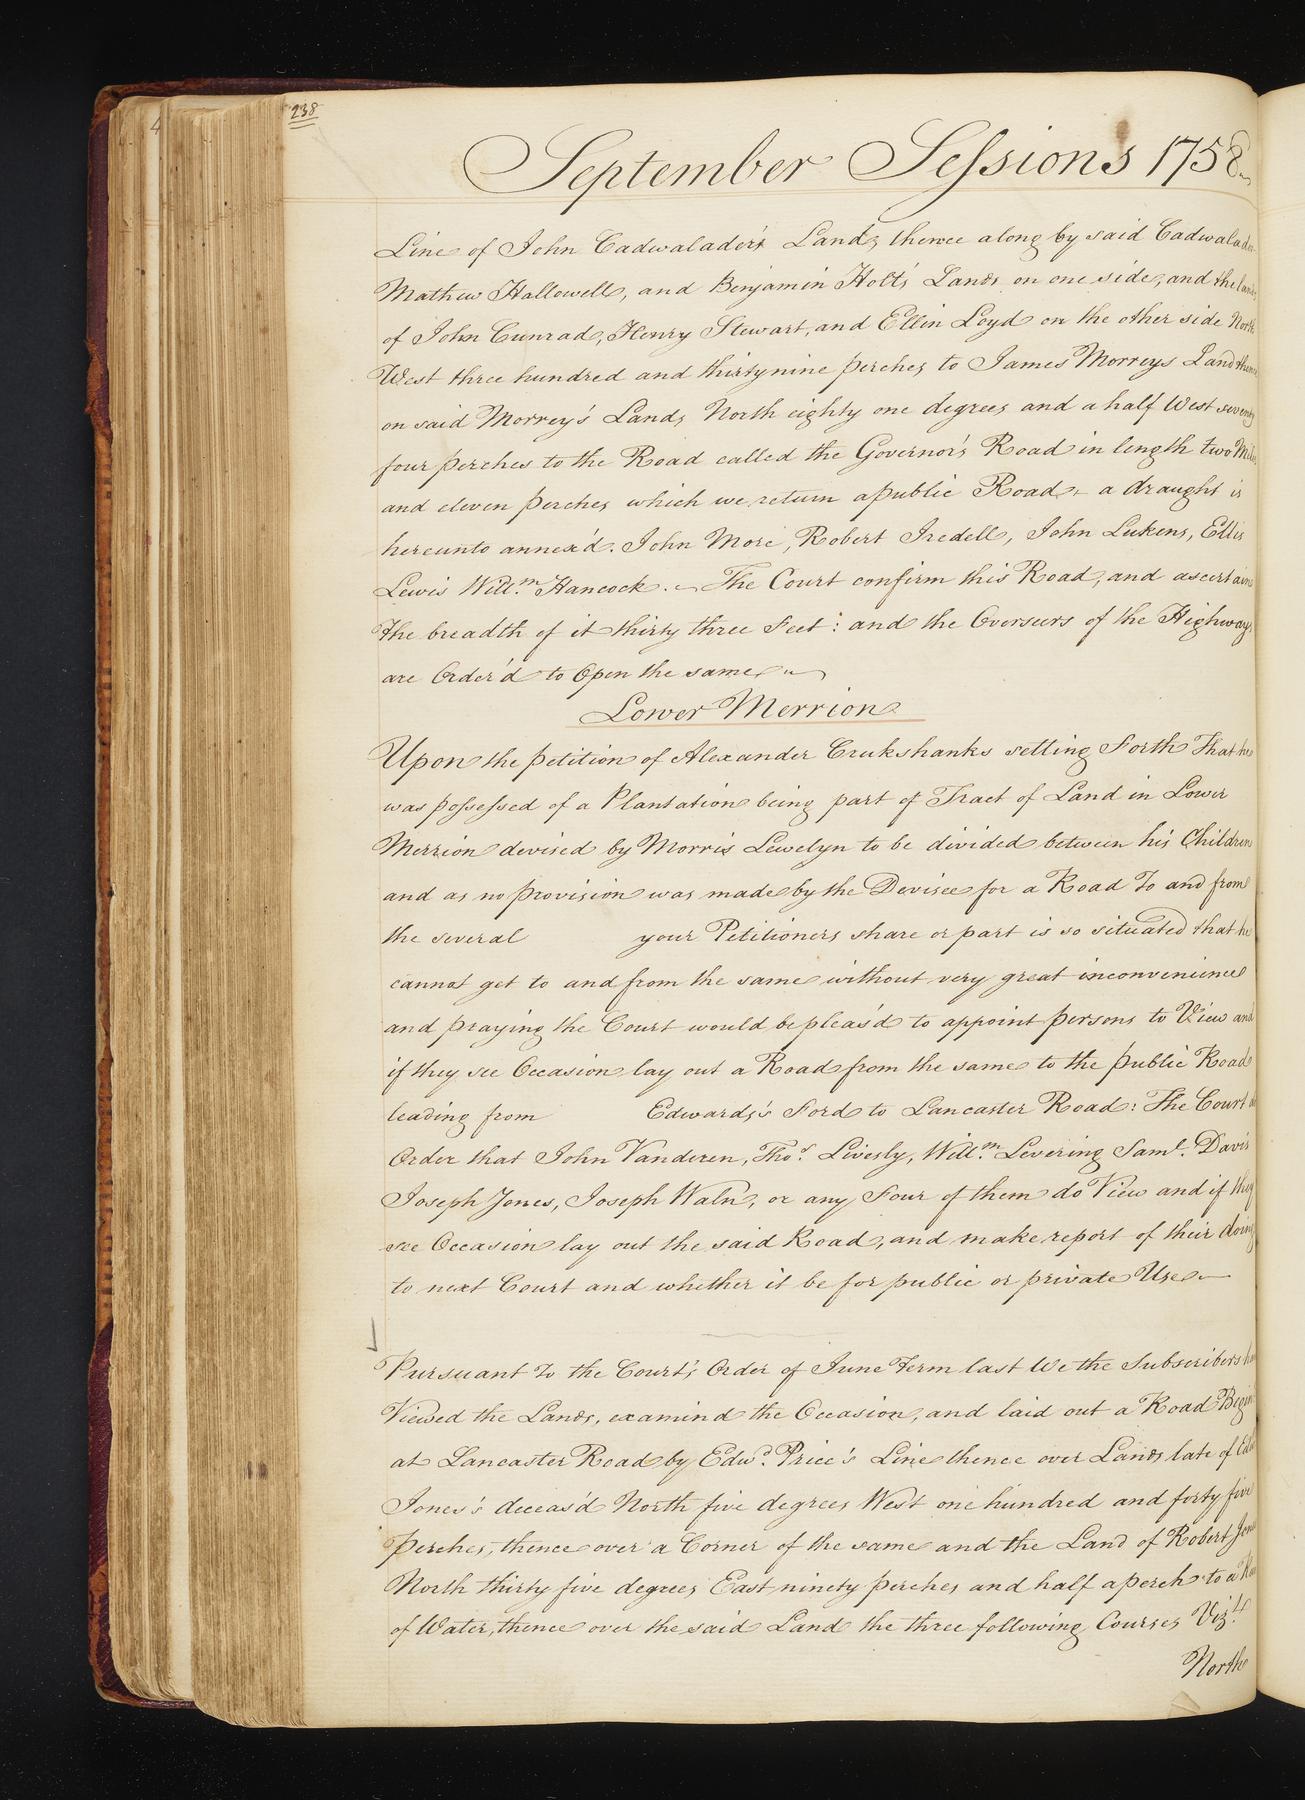 238
September Sessions 1758
Line of John Cadwalader's Land, thence along by said Cadwalader
Mathew Hallowell, and Benjamin Holt's Lands on one side, and the lands
of John Cunrad, Henry Stewart, and Ellin Loyd on the other side North
West three hundred and thirty nine perches to James Morreys Land thence
on said Morrey's Land, North eighty one degrees and a half West seventy
four perches to the Road called the Governor's Road in length two Miles
and eleven perches which we return a public Road, a draught is
hereunto annex'd. John More, Robert Iredell, John Lukens, Ellis
Lewis Will.m Hancock. The Court confirm this Road, and ascertain
the breadth of it thirty three Feet: and the Overseers of the Highways
are Order'd to Open the same
Lower Merrion
Upon the petition of Alexander Crukshanks setting Forth That he
was possessed of a Plantation being part of Tract of Land in Lower
Merrion devised by Morris Lewelyn to be divided between his Children
and as no provision was made by the Devisee for a Road To and from
the several your Petitioners share or part is so situated that he
cannot get to and from the same without very great inconvenience
and praying the Court would be pleas'd to appoint persons to View and
if they see Occasion lay out a Road from the same to the public Road
leading from Edwards's Ford to Lancaster Road: The Court do
Order that John Vanderen, Tho.s Livesly, Will.m Levering Sam.l Davis
Joseph Jones, Joseph Waln, or any Four of them do View and if they
see Occasion lay out the said Road, and make report of their doing
to next Court and whether it be for public or private Use
Pursuant To the Court's Order of June Term last We the Subscribers
Viewed the Lands, examind the Occasion, and laid out a Road
at Lancaster Road by Edw.d Price's Line thence over Lands late of
Jones's deceas'd North five degrees West one hundred and forty five
Perches, thence over a Corner of the same and the Land of Robert Jones
North thirty five degrees East ninety perches and half a perch to a
of Water, thence over the said Land the three following Courses Viz.t
North